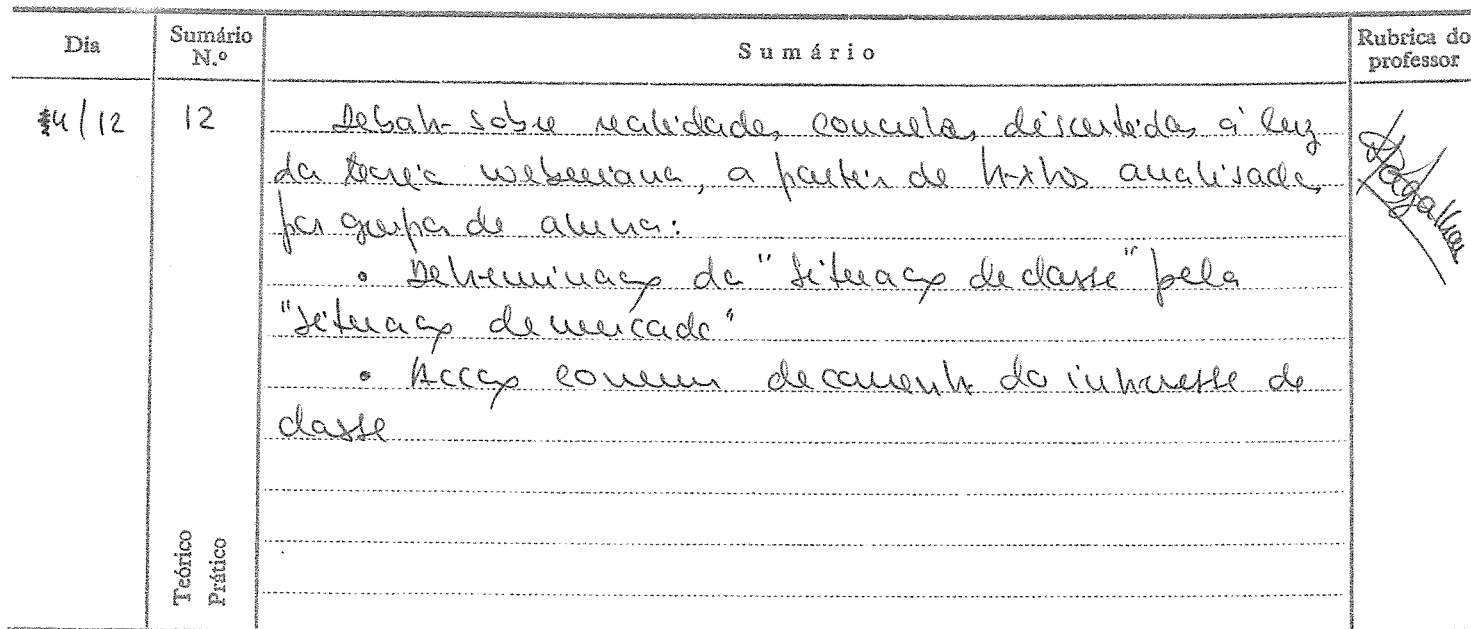 Dia
Sumário N.º
Sumário
Rubrica do professor
4/12
12
Debate sobre realidades concretas discutidas à luz
da teoria weberiana, a partir de textos analisados
por grupos de alunos:
• Determinação da "situação de classe" pela
"situação de mercado"
• Acção comum decorrente do interesse de
classe
Teórico
Prático